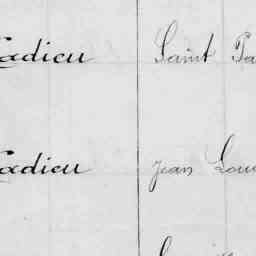 adieu Saint Pa
adieu Jean Lou